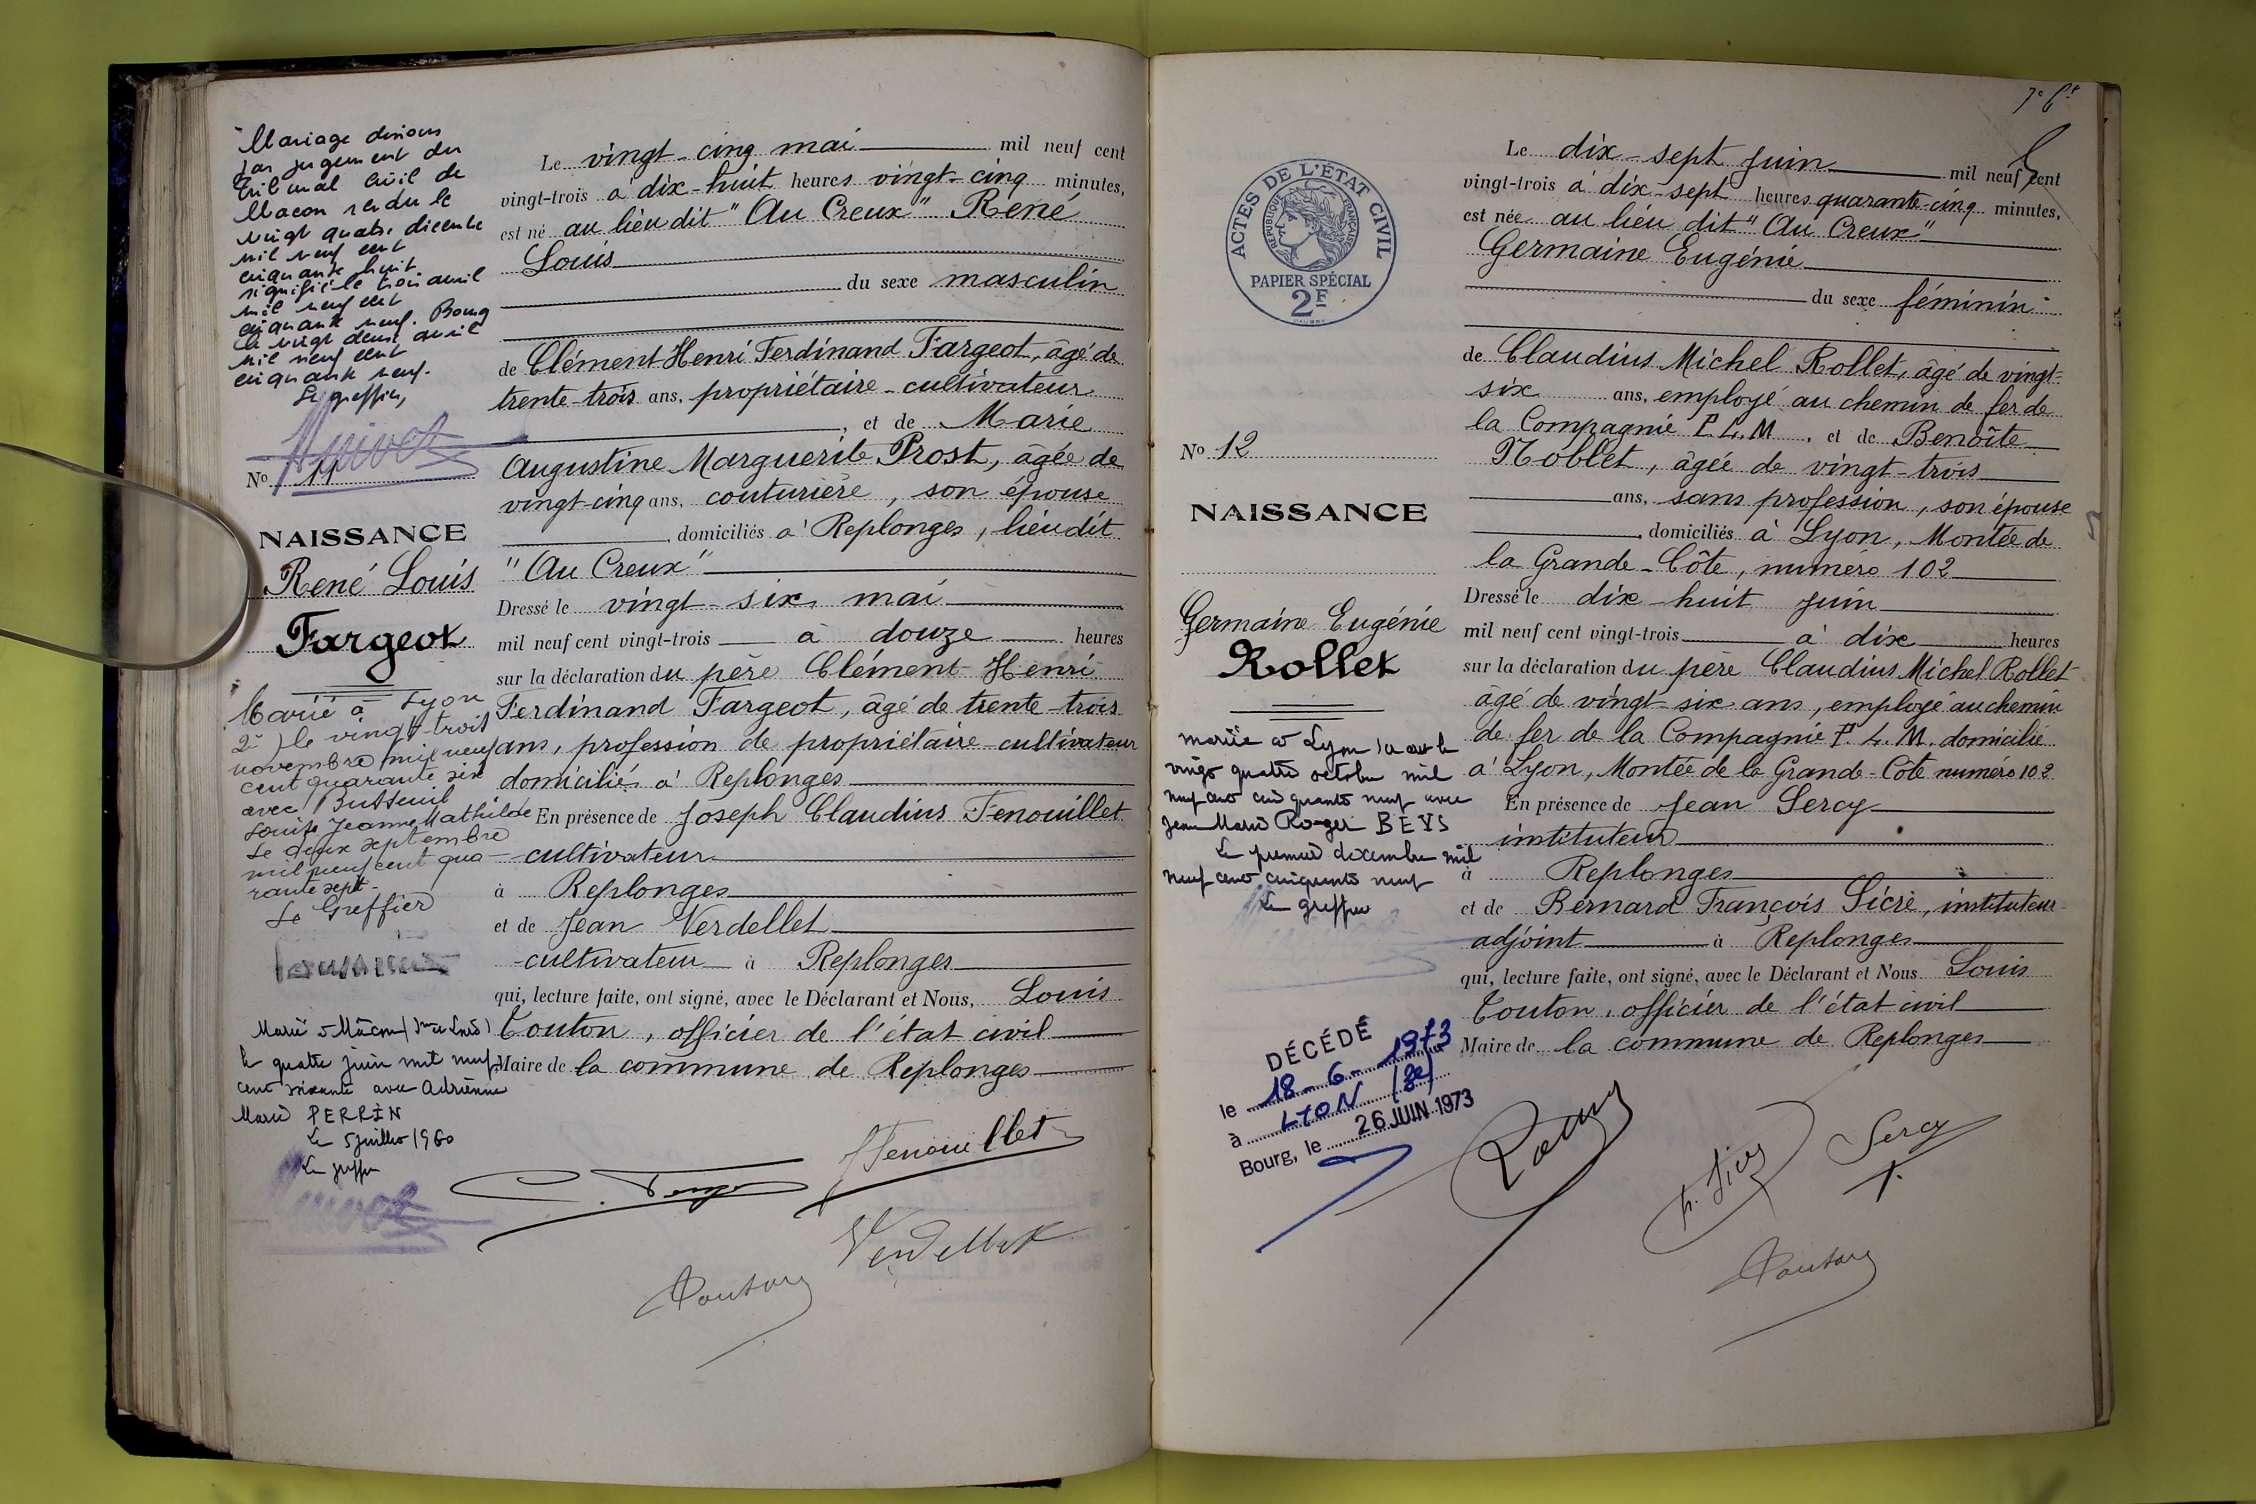 Mariage dissous
par jugement du
Tribunal Civil de
Macon rendu le
vingt quatre décembre
mil neuf cent
cinquante huit
signifié le trois avril
mil neuf cent
cinquante neuf. Bourg
le vingt deux avril
mil neuf cent
cinquante neuf.
Le greffier,
No 11
NAISSANCE
René Louis
Fargeot
Marié à Lyon
2e) le vingt-trois
novembre mil neuf
cent quarante six
avec
Louise Jeanne Mathilde
Le deux septembre
mil neuf cent qua-
rante sept-
Le Greffier
Marié à Mâcon
le quatre juin mil neuf
cent soixante avec Adrienne
Marie PERRIN
Le 5 juillet 1960
Le greffier
Le vingt-cinq mai mil neuf cent
vingt-trois à dix-huit heures vingt-cinq minutes,
est né au lieu dit "Au Creux" René
Louis
du sexe masculin
de Clément Henri Ferdinand Fargeot, âgé de
trente-trois ans, propriétaire-cultivateur
, et de Marie
Augustine Marguerite Prost, âgée de
vingt-cinq ans, couturière, son épouse
, domiciliés à Replonges, lieu dit
"Au Creux"
Dressé le vingt-six mai
mil neuf cent vingt-trois à douze heures
sur la déclaration du père Clément Henri
Ferdinand Fargeot, âgé de trente-trois
ans, profession de propriétaire-cultivateur
domicilié à Replonges
En présence de Joseph Claudius Fenouillet
cultivateur
à Replonges
et de Jean Verdellet
cultivateur à Replonges
qui, lecture faite, ont signé, avec le Déclarant et Nous, Louis
Touton, officier de l'état civil
Maire de la commune de Replonges
Fenouillet
Verdellet
Touton
7e ft
ACTES DE L'ÉTAT CIVIL
RÉPUBLIQUE FRANÇAISE
PAPIER SPÉCIAL
2F
No 12
NAISSANCE
Germaine Eugénie
Rollet
mariée à Lyon
vingt quatre octobre mil
neuf cent cinquante neuf avec
Jean Marie Roger BEYS
Le premier décembre mil
neuf cent cinquante neuf
Le greffier
DÉCÉDÉ
le 18-6-1973
à LYON (2e)
Bourg, le 26 JUIN 1973
Le dix-sept juin mil neuf cent
vingt-trois à dix-sept heures quarante-cinq minutes,
est née au lieu dit "Au Creux"
Germaine Eugénie
du sexe féminin
de Claudius Michel Rollet, âgé de vingt-
six ans, employé au chemin de fer de
la Compagnie P. L. M, et de Benoîte
Noblet, âgée de vingt-trois
ans, sans profession, son épouse
, domiciliés à Lyon, Montée de
la Grande-Côte, numéro 102
Dressé le dix-huit juin
mil neuf cent vingt-trois à dix heures
sur la déclaration du père Claudius Michel Rollet
âgé de vingt-six ans, employé au chemin
de fer de la Compagnie P. L. M. domicilié
à Lyon, Montée de la Grande-Côte numéro 102
En présence de Jean Sercy
instituteur
à Replonges
et de Bernard François Sicre, instituteur
adjoint à Replonges
qui, lecture faite, ont signé, avec le Déclarant et Nous Louis
Touton, officier de l'état civil
Maire de la commune de Replonges
Sercy
Touton